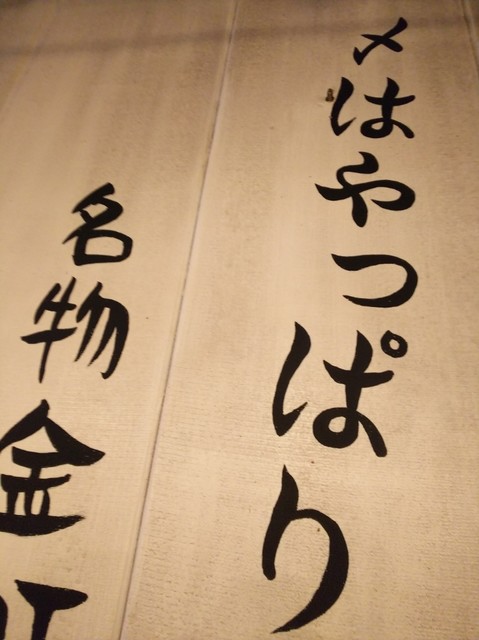 〆はやっぱり
名物金